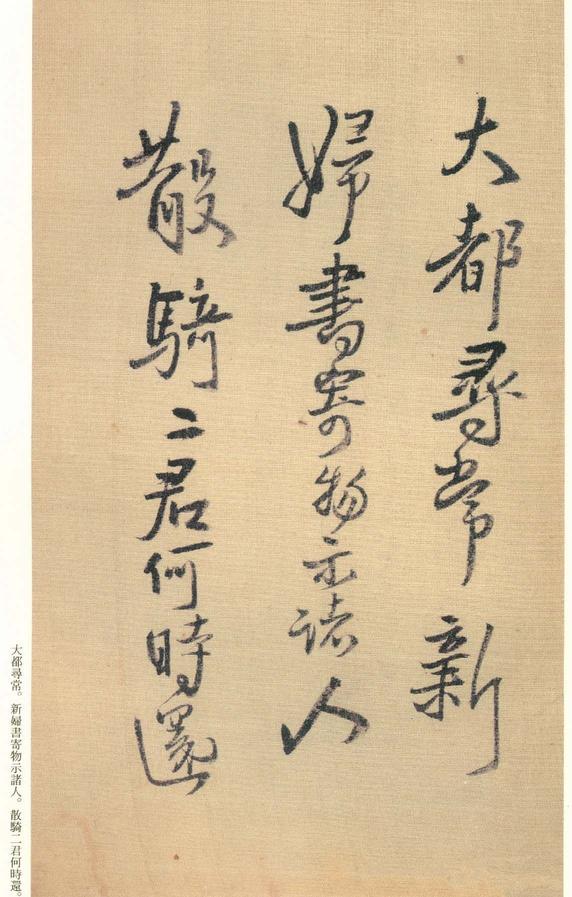 大都尋常新
婦書寄物示諸人
散騎二君何時還
大都尋常。新婦書寄物示諸人。散騎二君何時還。